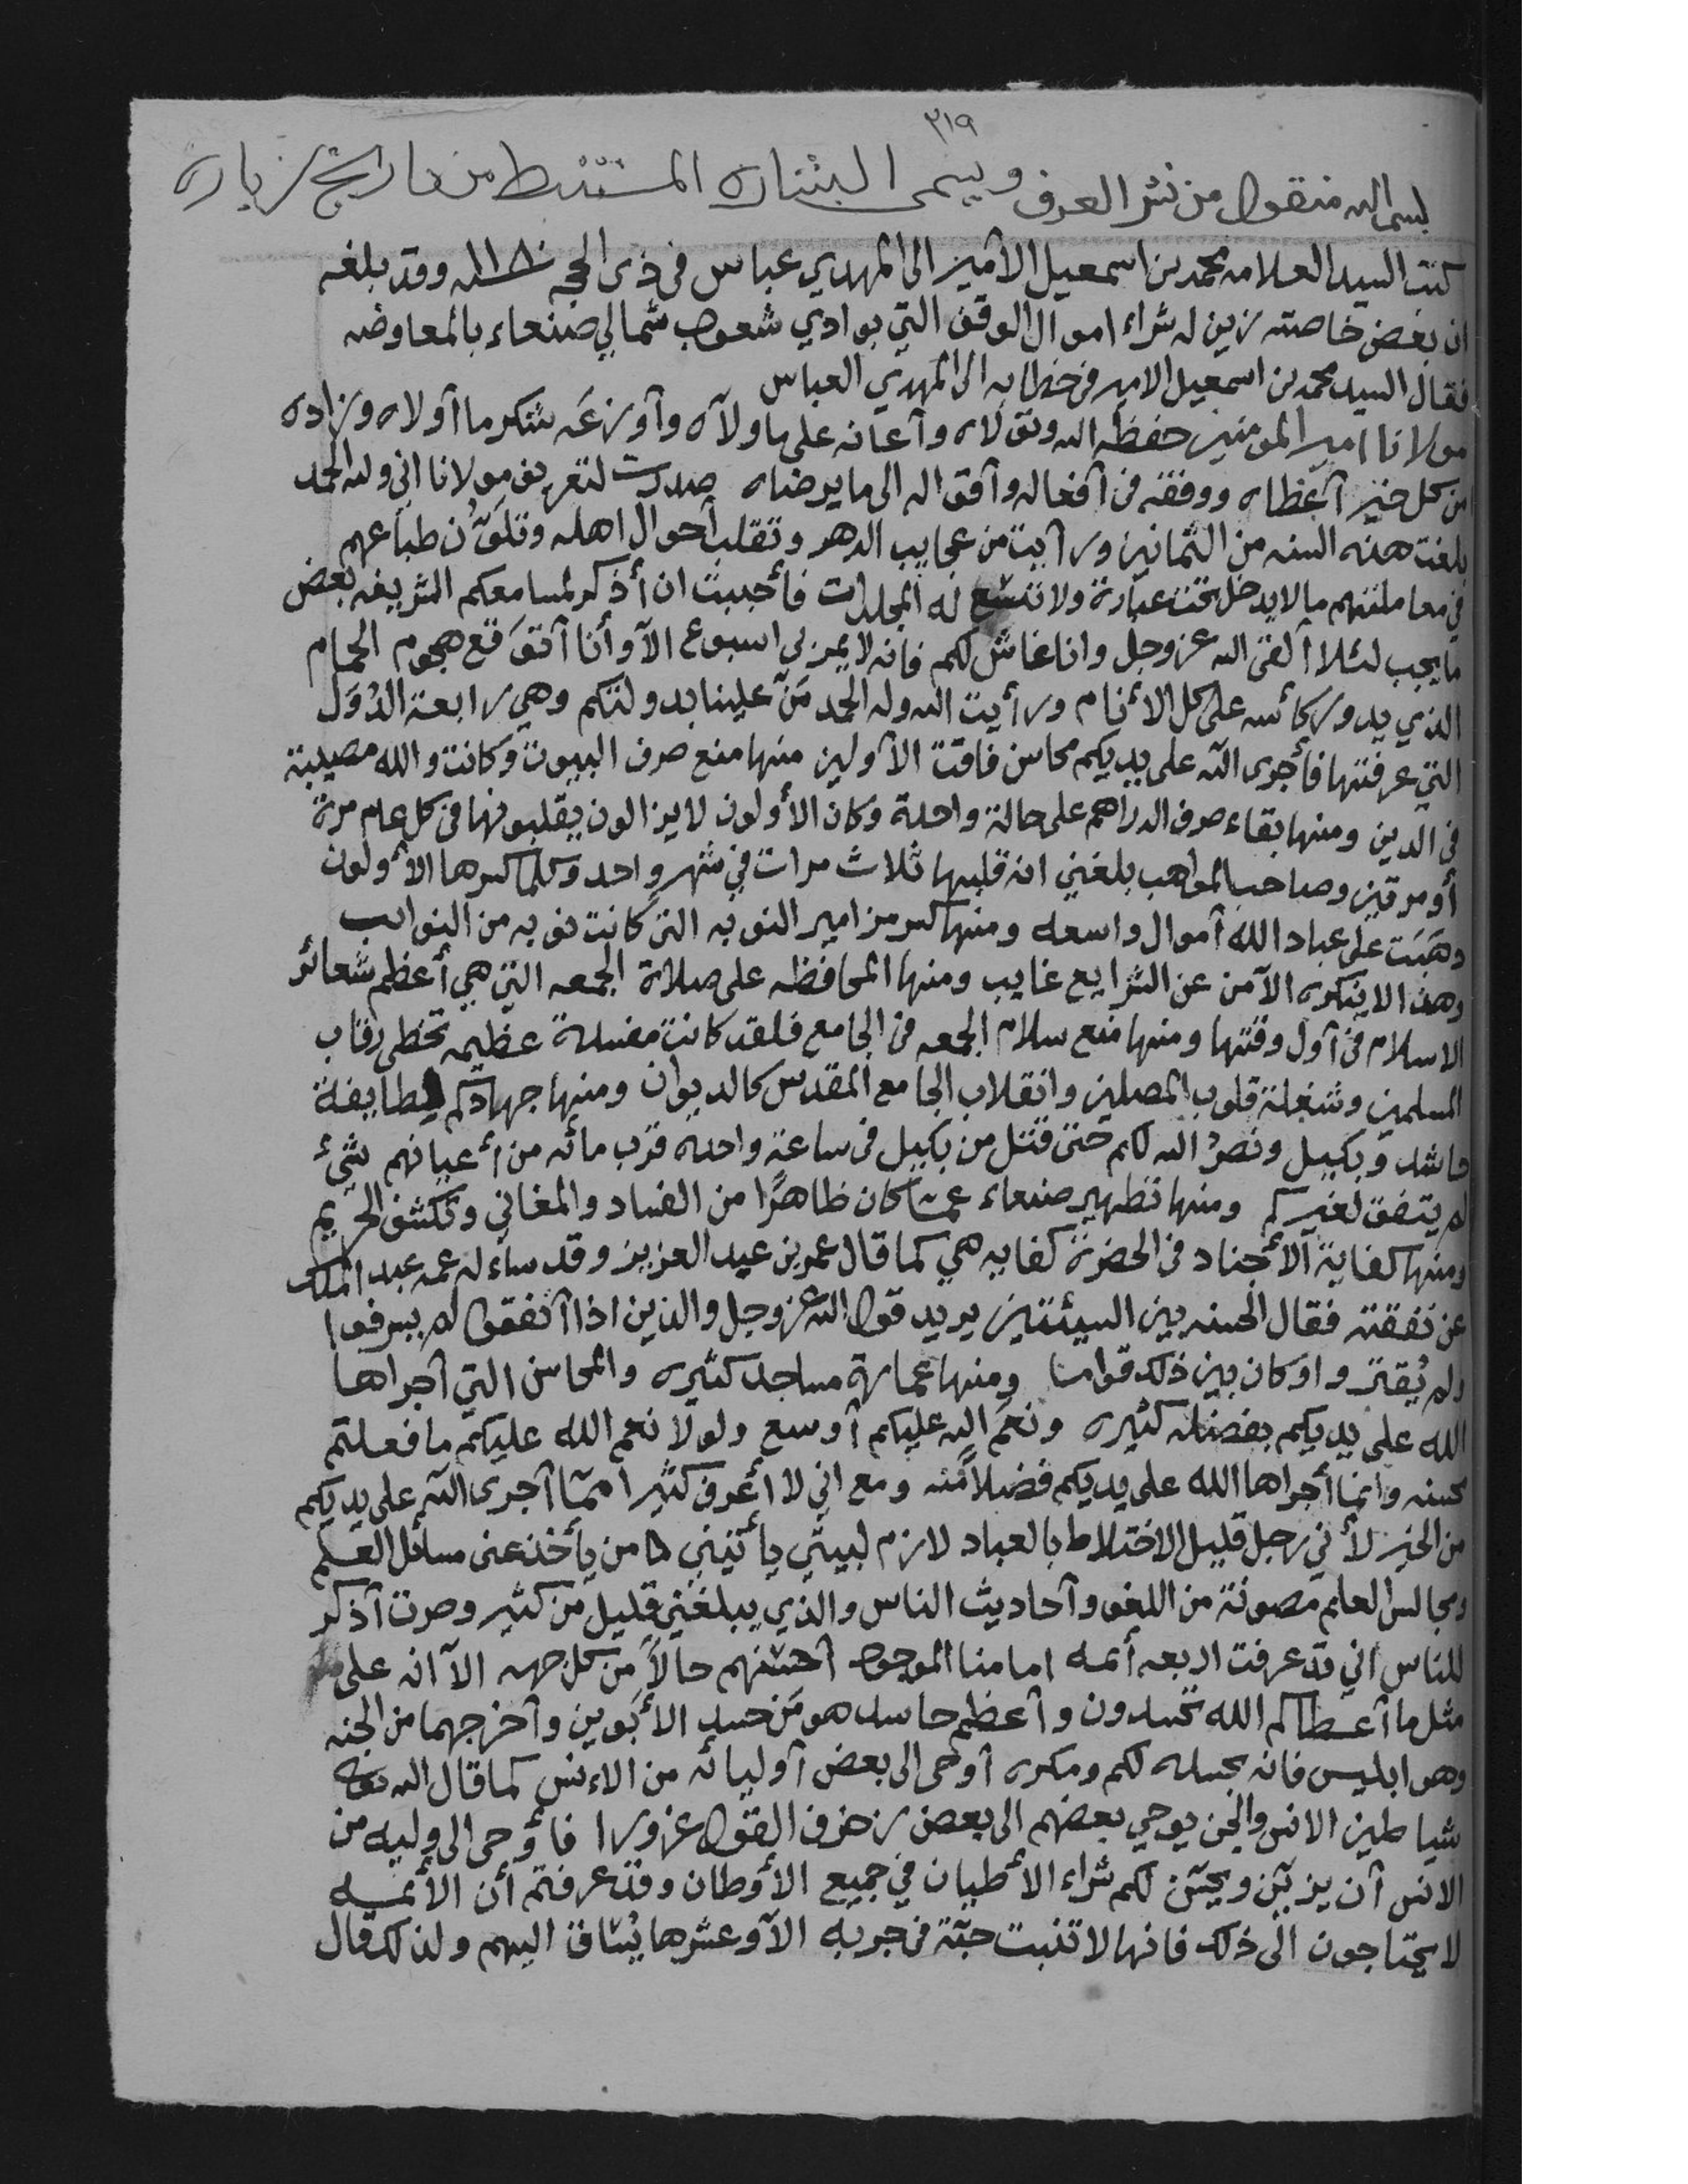 ٣١٩
بسم الله منقول من نشر العرف ويسمى المستنبط من تاريخ زباره
كتب السيد العلامه محمد بن اسمعيل الأمير الى المهدي عباس في ذي الحجه سنة ١١٨٠ وقد بلغه
ان بعض خاصته زين له شراء اموال الوقف التي بوادي شعوب شمالي صنعاء بالمعاوضه
فقال السيد محمد بن اسمعيل الامير في خطابه الى المهدي العباس
مولانا امير المومنين حفظه الله وتولاه وأعانه على ماولآه وأوزعَه شكر ما أولاه وزاده
من كل خير أعطاه ووفقه في أفعاله وأقواله الى ما يرضاه صدرت لتعريف مولانا اني ولله الحمد
بلغت هذه السنه من الثمانين ورأيت من عجايب الدهر وتقلب أحوال اهله وتلوّن طباعهم
في معاملتهم ما لا يدخل تحت عبارة ولا تتسع له المجلدات فأحببت ان أذكر لمسامعكم الشريفه بعض
ما يجب لئلا ألقى الله عز وجل وانا غاش لكم فانه لا يمر بي اسبوع الآ وأنا أتوَقع هجوم الحمام
الذي يدور كأسه على كل الأنام ورأيت الله وله الحمد مَنّ علينا بدولتكم وهي رابعة الدُوَل
التي عرفتها فأجرى الله على يديكم محاسن فاقت الأولين منها منع صرف البيوت وكانت والله مصيبة
في الدين ومنها بقاء صرف الدراهم على حالة واحدة وكان الأولون لايزالون يقلبونها في كل عام مرة
أو مرتين وصاحب المواهب بلغني انه قلبها ثلاث مرات في شهر واحد وكلما كسرها الأولون
ذهبت على عباد الله أموال واسعه ومنها كسر مزامير النوبه التي كانت نوبه من النوايب
وهذا لا ينكره الآ من عن الشرايع غايب ومنها المحافظه على صلاة الجمعه التي هي أعظم شعائر
الاسلام في أول وقتها ومنها منع سلام الجمعه في الجامع فلقد كانت مفسدة عظيمه تخطي رقاب
المسلمين وشغلة قلوب المصلين وانقلاب الجامع المقدس كالديوان ومنها جهادكم لطايفة
حاشد وبكيل ونصرُ الله لكم حتى قتل من بكيل في ساعة واحده قرب مائه من أعيانهم شيءٌ
لم يتفق لغيركم ومنها تطهير صنعاء عمّا كان ظاهرًا من الفساد والمغاني وتكشف الحريم
ومنها كفاية الأجناد في الحضرة كفايه هي كما قال عمر بن عبد العزيز وقد ساءله عمه عبد الملك
عن نفقته فقال الحسنه بين السيئتين يريد قول الله عز وجل والذين اذا أنفقوا لم يسرفوا
ولم يُقتروا وكان بين ذلك قواما ومنها عمارة مساجد كثيره والمحاسن التي أجراها
الله على يديكم بفضله كثيره ونعَم الله عليكم أوسع ولولا نعم الله عليكم ما فعلتم
حسنه وانما أجراها الله على يديكم فضلاً منه ومع اني لا أعرف كثيرا ممّا أجرى الله على يديكم
من الخير لأني رجل قليل الاختلاط بالعباد لازم لبيتي يأتيني من يأخذ عني مسائل العلم
ومجالس العلم مصونة من اللغو وأحاديث الناس والذي يبلغني قليل من كثير وصرت أذكر
للناس اني قد عرفت اربعه أئمه امامنا الموجود أحسنهم حالاً من كل جهه الآ انه على
مثل ما أعطاكم الله تحسدون وأعظم حاسد هو مَن حسد الأبَوين وأخرجهما من الجنه
وهو ابليس فانه بحسده لكم ومكره أوحى الى بعض أوليائه من الإنس كما قال الله تعالى
شياطين الانس والجن يوحي بعضهم الى بعض زخرف القول غرورا فأوحى الى وليه من
الانس أن يزيّن ويحسّن لكم شراء الأطيان في جميع الأوطان وقد عرفتم أن الأئمه
لا يحتاجون الى ذلك فانها لا تنبت حبّة في جربه الآ وعشرها يُساق اليهم ولذلك قال